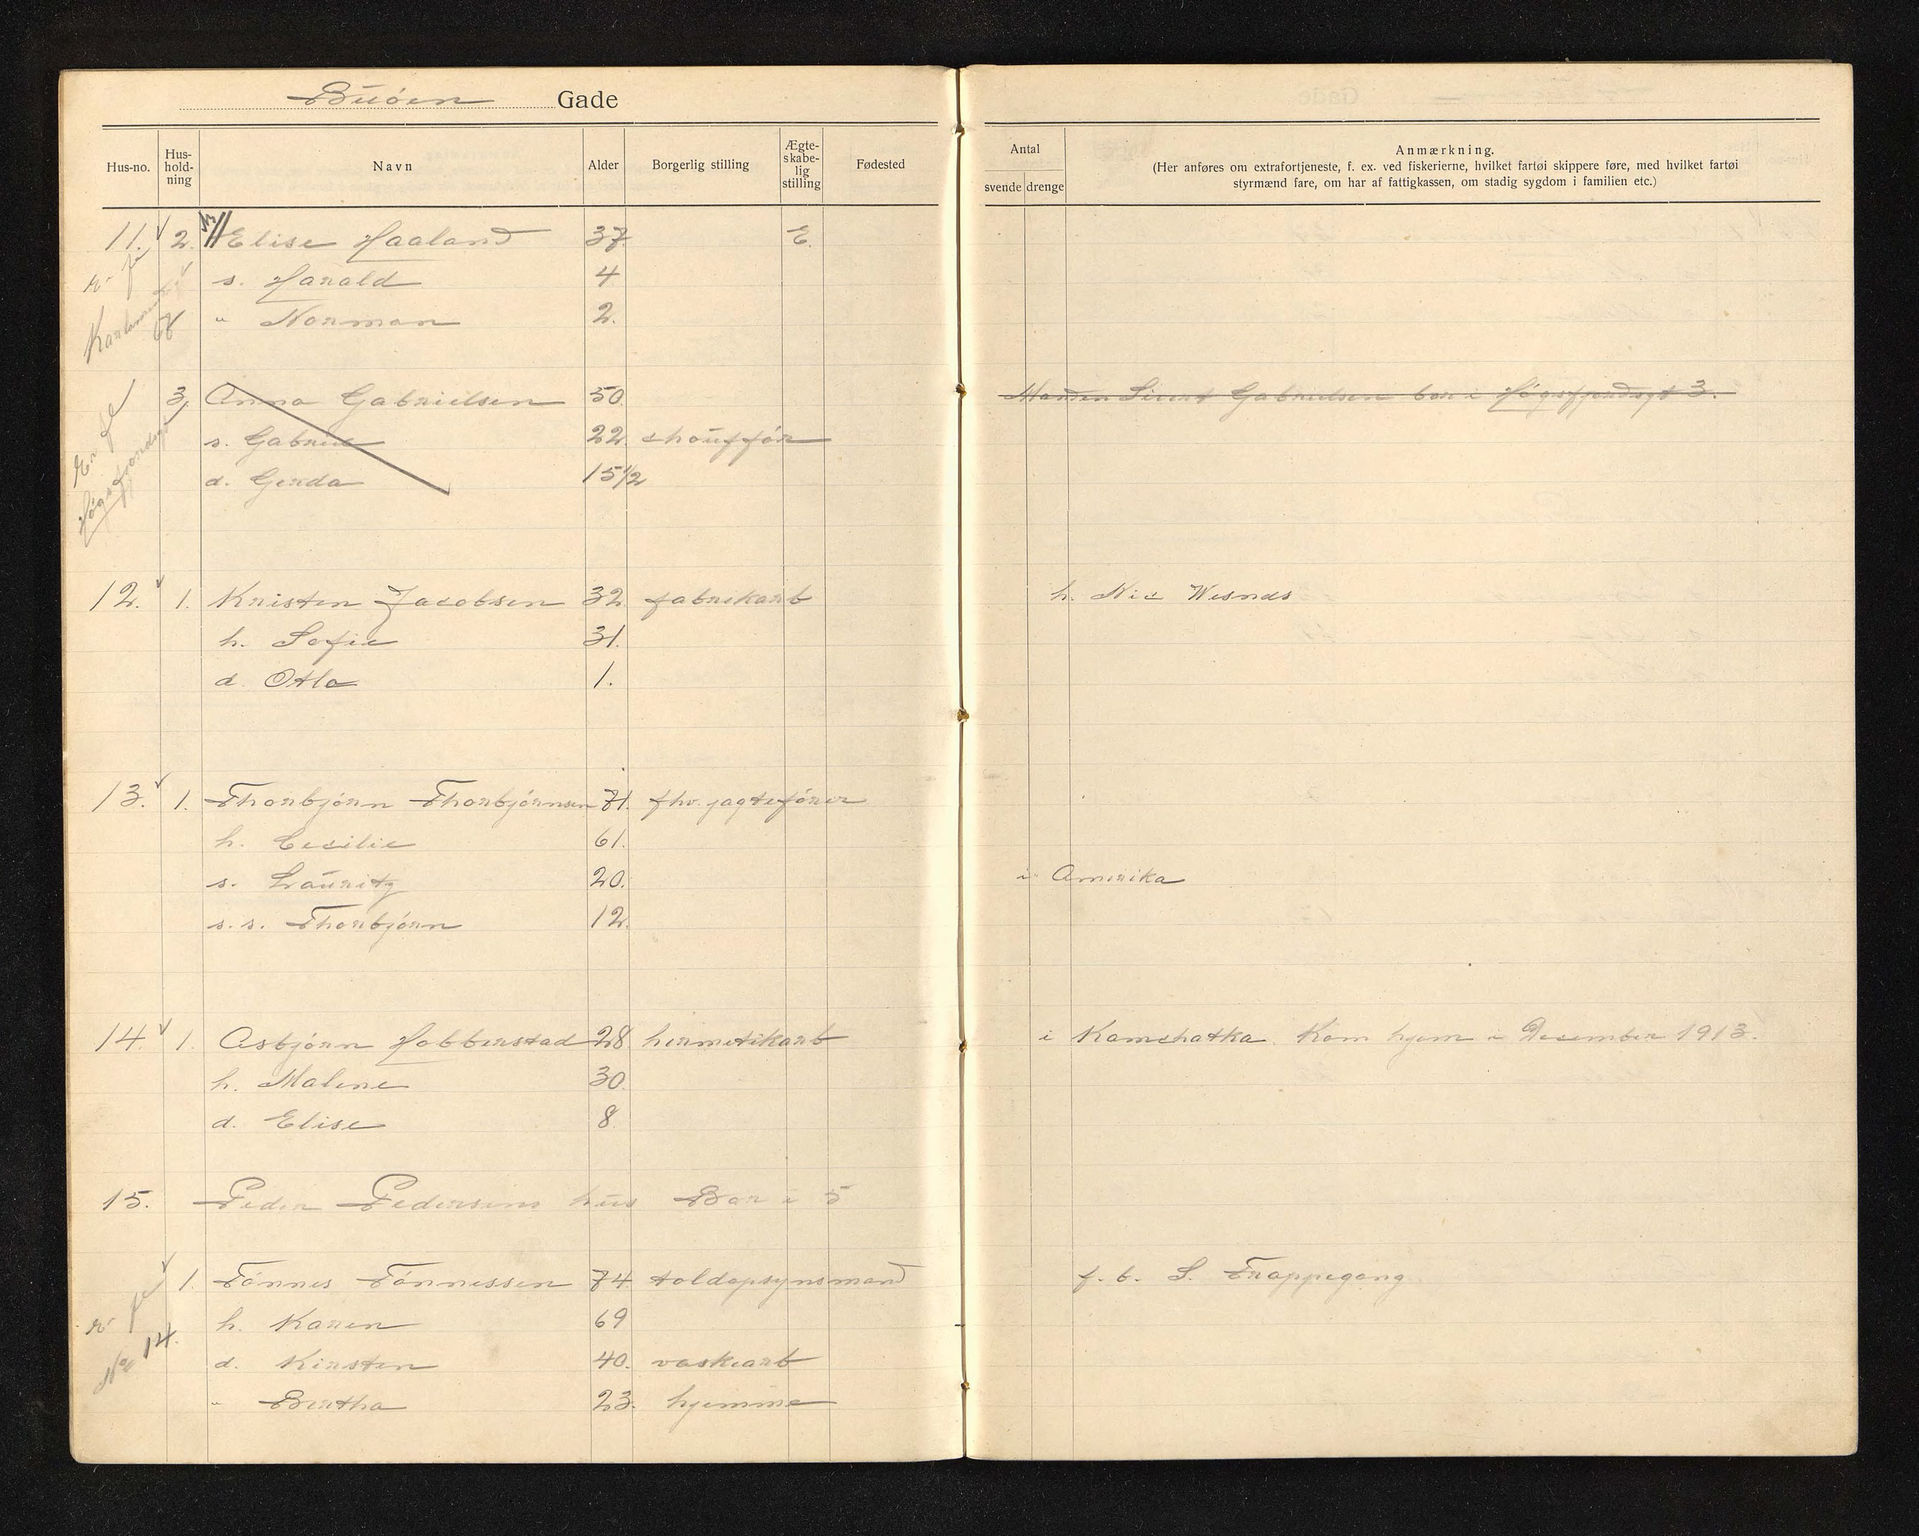 Buøen Gade
Hus-no. Hus-hold-ning Navn Alder Borgerlig stilling Ægte-skabe-lig stilling Fødested
Antal
svende drenge
Anmærkning.
(Her anføres om extrafortjeneste, f. ex. ved fiskerierne, hvilket fartøi skippere føre, med hvilket fartøi
styrmænd fare, om har af fattigkassen, om stadig sygdom i familien etc.)
11. 2. Elise Haaland 37. E.
s. Harald 4
" Norman 2.
68
3, Anna Gabrielsen 50. Manden Sivert Gabrielsen bor i Høgsfjordsgt 3.
s. Gabriel 22 chouffør
d. Gerda 15 1/2
Er fl
Høgsfjordsgt
12. 1. Kristen Jacobsen 32 fabrikarb h.
h. Sofie 31.
d. Otla 1.
13. 1. Thorbjørn Thorbjørnsen 71. fhv. jagtefører
h. Cecilie 61.
s. Lauritz 20. i Amerika
s.s. Thorbjørn 12.
14. 1. Asbjørn Hobberstad 28 hermetikarb i Kamchatka. Kom hjem i Desember 1913.
h. Malene 30.
d. Elise 8
15. Peder Pedersens hus Bor i 5
1. Tønnes Tønnessen 74 toldopsynsmand f. b. S. Trappegang
h. Karen 69
No 14.
d. Kirsten 40. vaskearb
" Bertha 23. hjemme